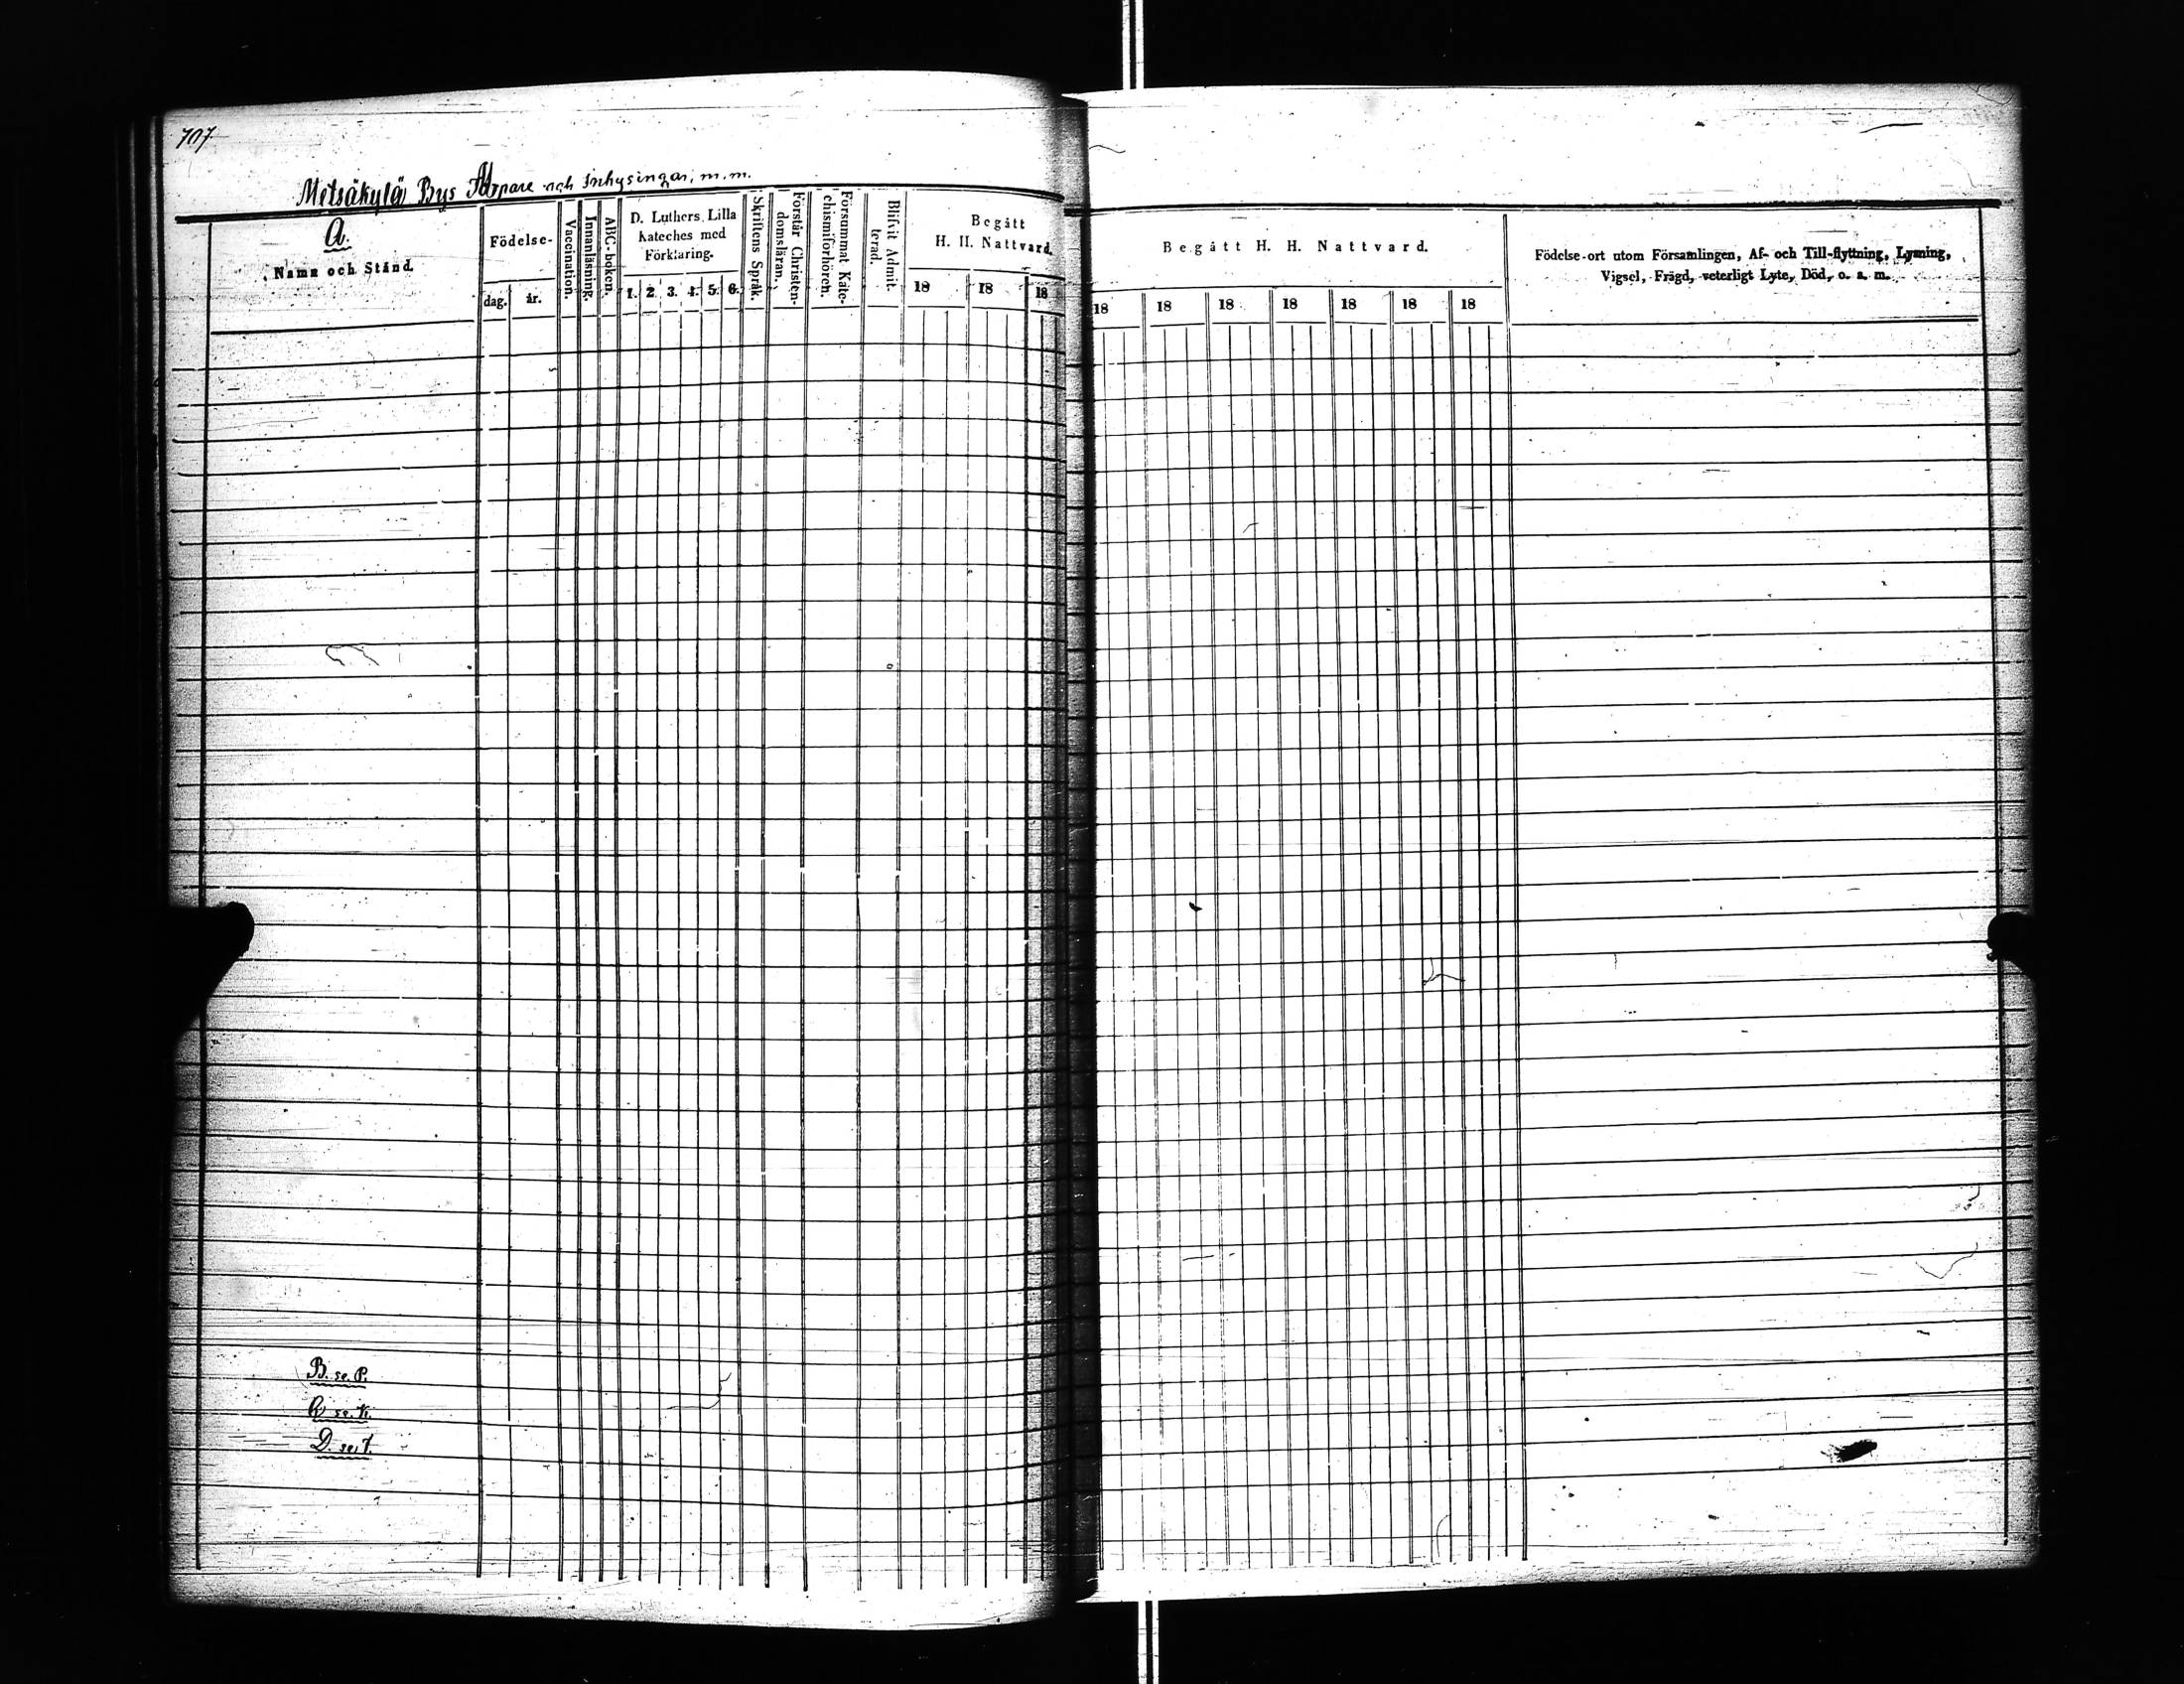 707
Metsäkylä Bys Torpare och Inhysingar, m.m.
A.
Namn och Stånd.
Födelse-
dag.
år.
Vaccination.
Innanläsning.
ABC-boken.
D. Luthers Lilla
Kateches med
Förklaring.
1. 2. 3. 4. 5. 6.
Skriftens Språk.
Förstår Christen-
domsläran.
Försummat Kate-
chismiförhören.
Blifvit Admit-
terad.
Begått
H. H. Nattvard.
18 18 18
Begått H. H. Nattvard.
18 18 18 18 18 18 18
Födelse-ort utom Församlingen, Af- och Till-flyttning, Lysning,
Vigsel, Frägd, veterligt Lyte, Död, o. s. m.
B. se. P.
se. K.
D. se. T.